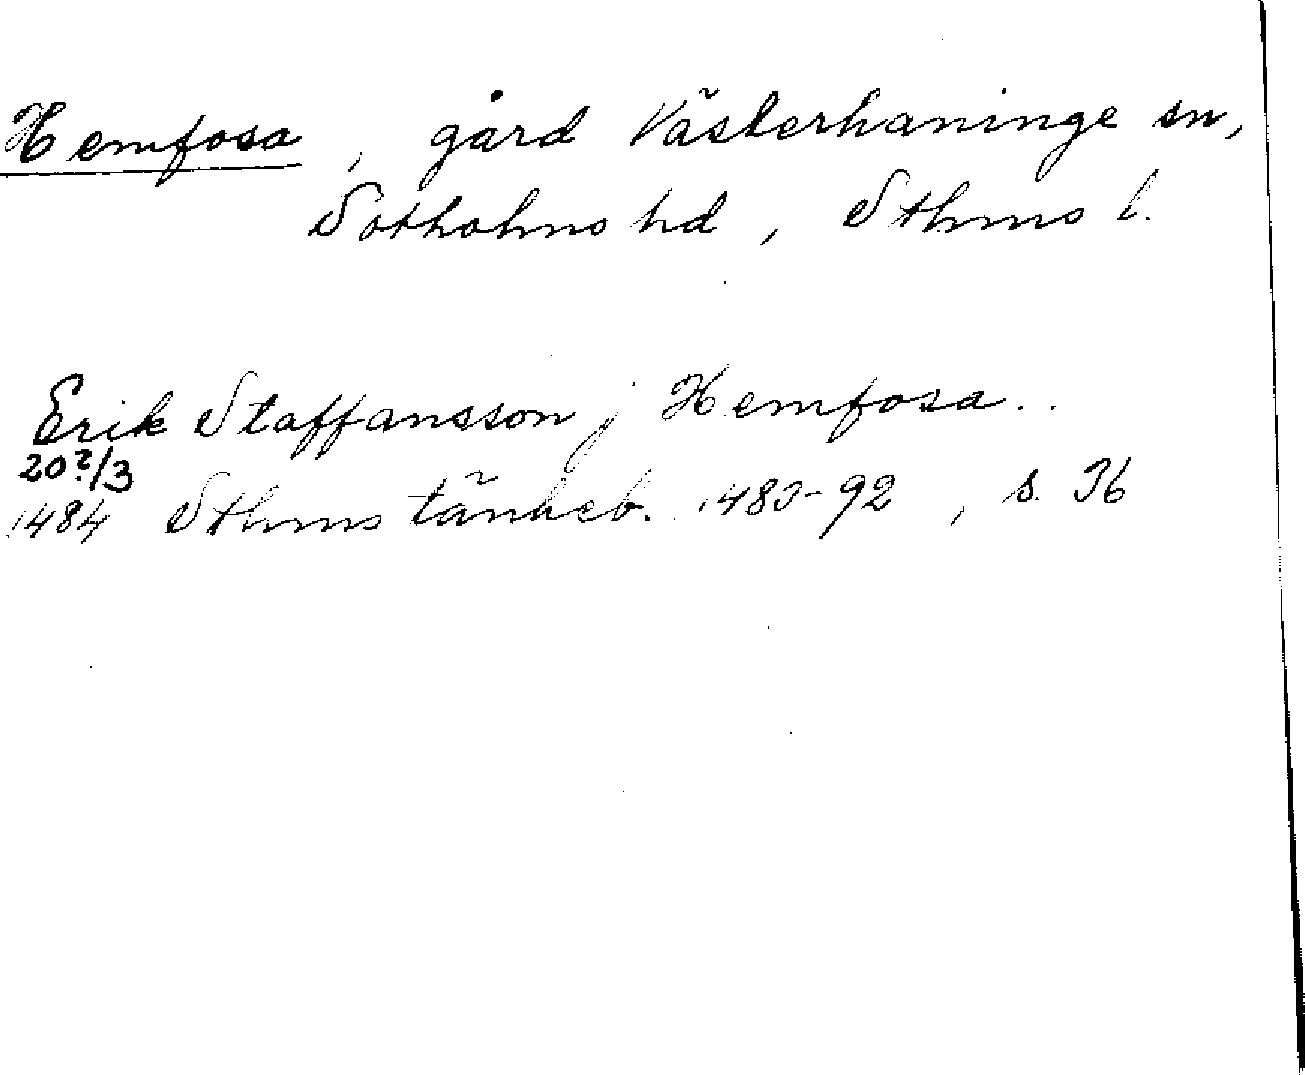 Hemfosa, gård Västerhaninge sn,
Sotholms hd, Sthms l.
Erik Staffansson j Hemfosa..
20?/3
1484 Sthms tänkeb. 1483-92, s. 36